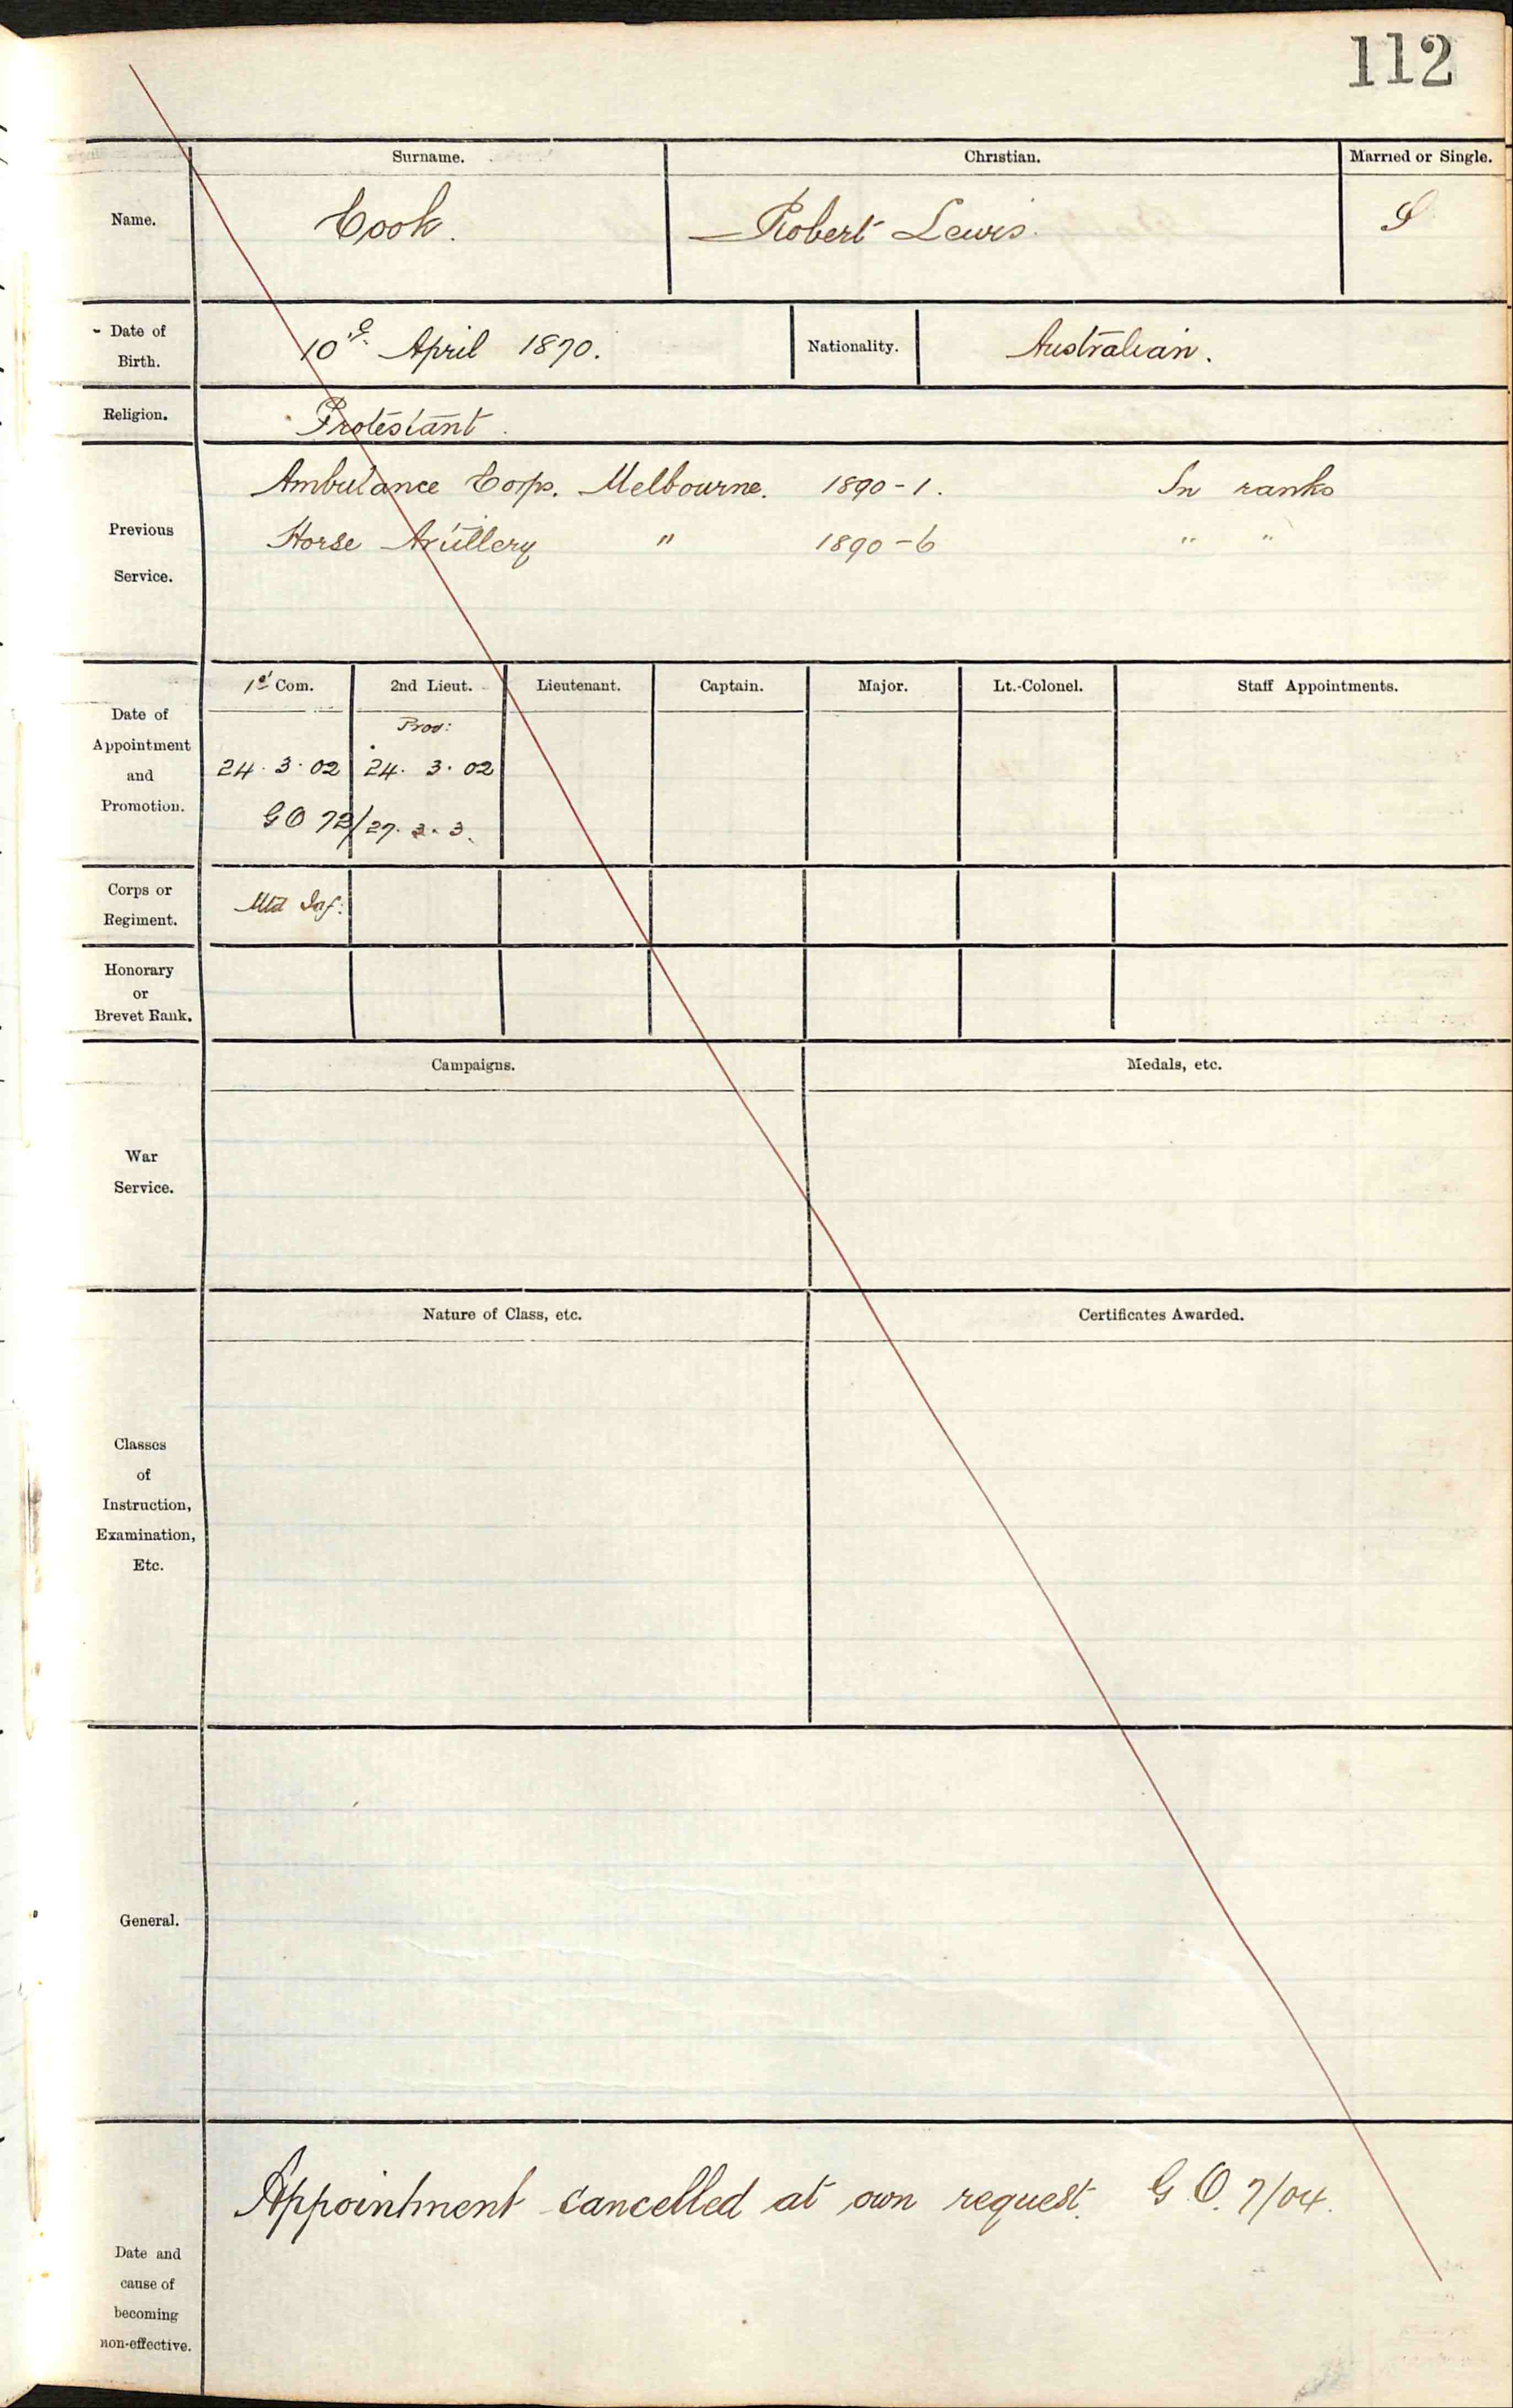 112
Surname. Christian. Married or Single.
Name. Cook. Robert Lewis. S
Date of Birth. 10th April 1870. Nationality. Australian.
Religion. Protestant.
Previous Service.
Ambulance Corps. Melbourne. 1890-1. In ranks
Horse Artillery " 1890-6 " "
Date of Appointment and Promotion.
1st Com. 2nd Lieut. Lieutenant. Captain. Major. Lt.-Colonel. Staff Appointments.
Prov:
24.3.02 24.3.02
GO 72/27.3.3.
Corps or Regiment. Mtd Inf:
Honorary or Brevet Rank.
Campaigns. Medals, etc.
War Service.
Nature of Class, etc. Certificates Awarded.
Classes of Instruction, Examination, Etc.
General.
Appointment cancelled at own request. G.O. 7/04.
Date and cause of becoming non-effective.